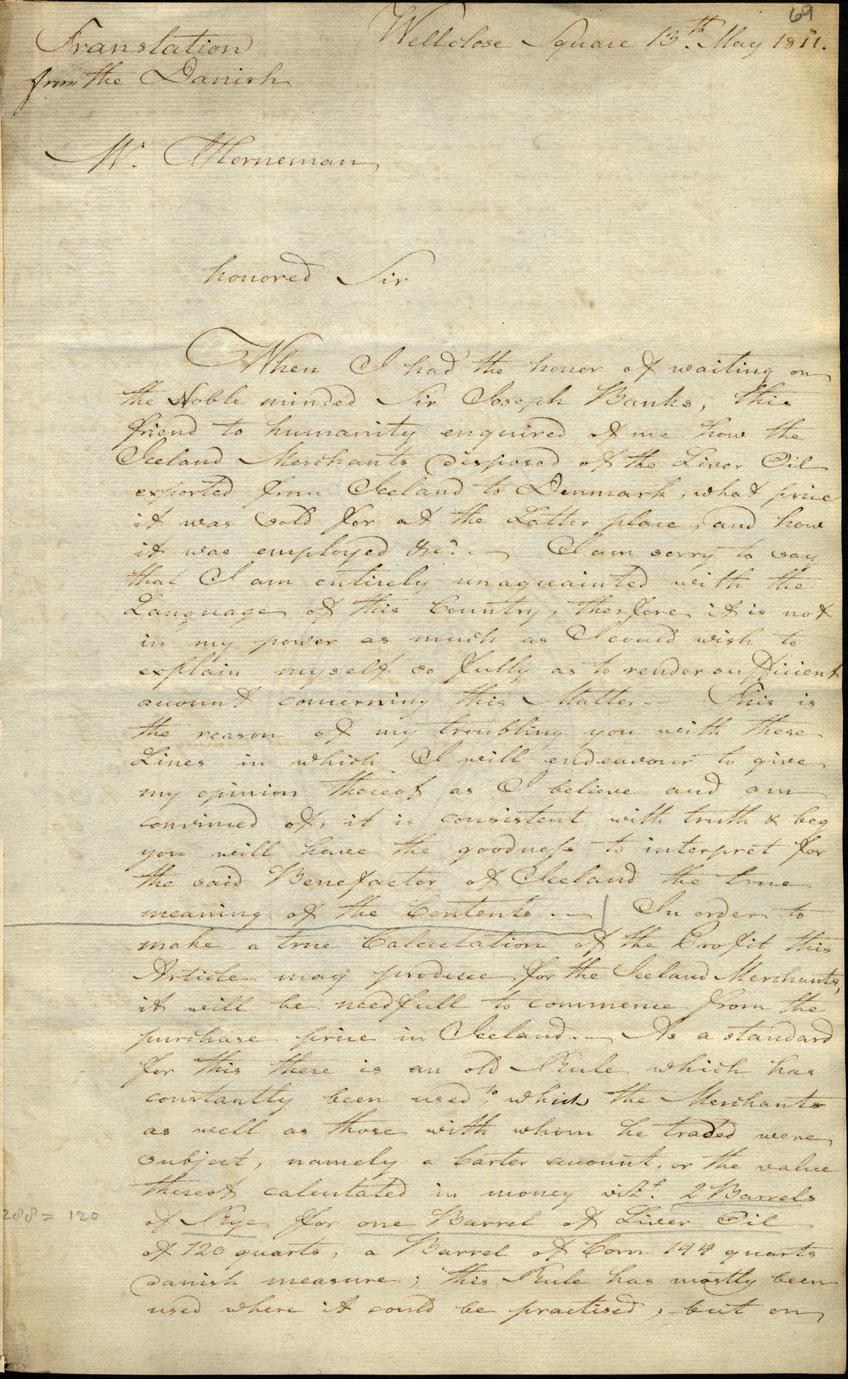 69
Translation Wellclose Square 13th May 1811.
from the Danish
Mr. Horneman
honored Sir
When I had the honor of waiting on
the Noble minded Sir Joseph Banks, this
friend to humanity enquired of me how the
Iceland Merchants disposed of the Liver Oil
exported from Iceland to Denmark, what price
it was sold for at the Latter place, and how
it was employed &c. — I am sorry to say
that I am entirely unaquainted with the
Language of this Country, therfore it is not
in my power as much as I could wish to
explain myself so fully as to render sufficient
account concerning this Matter — This is
the reason of my troubling you with these
Lines in which I will endeavour to give
my opinion thereof as I believe and am
convinced of, it is consistent with truth & beg
you will have the goodness to interpret for
the said Benefactor of Iceland the true
meaning of the Contents. — In order to
make a true Calculation of the Profit this
Article may produce for the Iceland Merchants,
it will be needfull to commence from the
purchase price in Iceland. — As a standard
for this there is an old Rule which has
constantly been used, to which the Merchants
as well as those with whom he traded were
subject, namely a barter account, or the value
thereof calculated in money vizt. 2 Barrels
of Rye for one Barrel of Liver Oil
288 = 120
of 120 quarts, a Barrel of Corn 144 quarts
danish measure; this Rule has mostly been
used where it could be practised, but on